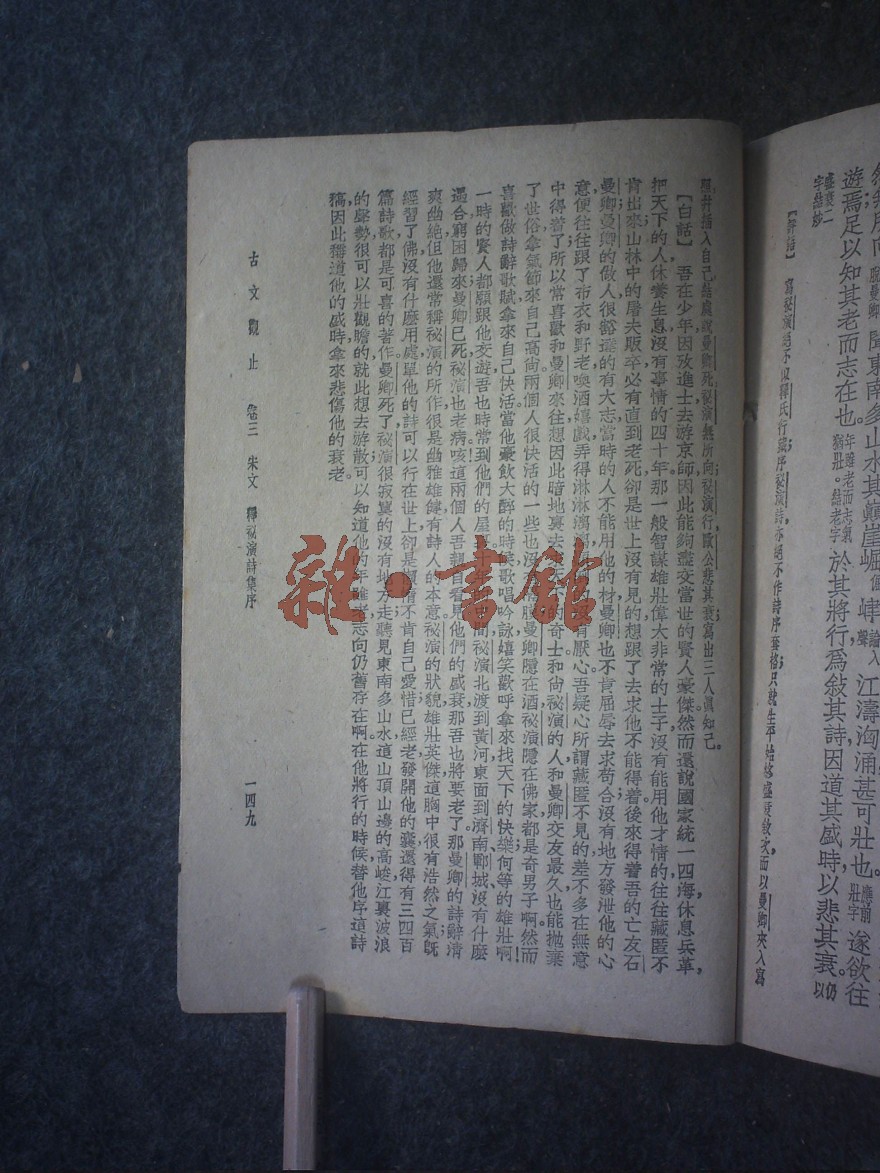 然無所向
遊焉足以知其老而志在也年雖老而志氣猶壯。結老字於其將行爲敍其詩因道其盛時以悲其衰。仍以
盛衰二
字結妙
寫祕演絕不似釋氏行藏序祕演詩亦絕不作詩序套格只就生平始終盛衰敘次而以曼卿夾入寫
照幷插入自己結處說曼卿死祕演無所向祕演行歐公悲其衰寫出三人眞知己。
【白話】吾在少年因攷進士去游京師因此能夠盡交當世的賢人豪傑然而還說國家統一四海休息兵革,
把天下的人休養生息沒有事情的四十年那一般智謀雄壯偉大非常的士子沒有能用他才情的往往藏匿不
肯出來山林中的屠夫販卒必有直到老死卻是世上沒有見的想跟了去求他不能得着後來得着吾的亡友石
曼卿曼卿的做人很豁達的有大志當時的人不能用他的材曼卿也不肯屈辱去求苟合沒有地方發泄他的心
意便往往跟了布衣和野老喚酒嬉戲弄得淋淋漓
沒有厭心吾疑心所謂藏匿不見的差不多在無意
中得着了所以常喜歡和曼卿來往想因此暗地裏去
的奇士和尚祕演的人和曼卿交友最久也能拋棄
了世俗拿氣節來自己高尚兩個人很快活的一些也沒
曼卿隱在酒祕演隱在佛家都是奇男子啊然而
喜歡做詩辭歌賦拿來自己快活當他豪飲大醉的時候歌唱吟詠嬉笑歡呼拿來找天下的快樂何等的雄壯啊!
一時的賢人都願跟他交遊吾也時常到他們的屋
祕演北渡到黃河東面到濟南鄆城沒有什麽
遇合窮困歸來曼卿已死祕演也老病咳這兩個人吾親自看見他們的盛衰那吾也將要老了那曼卿的詩辭清
爽曲絕但他還常稱祕演的所作很是曲雅雄健有詩人的本意祕演的狀貌雄壯英傑這胸中很有浩然之氣旣
經習了佛沒有什麼用處單他的詩可以行在世上卻是懶惰不肯自己愛惜已經老發開他的囊還得有三四百
篇詩歌都是可喜的著作曼卿死了祕演很寂寞的沒有地方走聽見東南多山水這山頂山邊的高峻江裏波浪
的聲勢很可以壯觀瞻的就此想去游散可以知道他的年雖老志向仍舊存在啊在他將行的時候替他序這詩
稿因此稱道他的盛時拿來悲傷他的衰老。
古文觀止 卷三 宋文 釋祕演詩集序 一四九
雜·書館